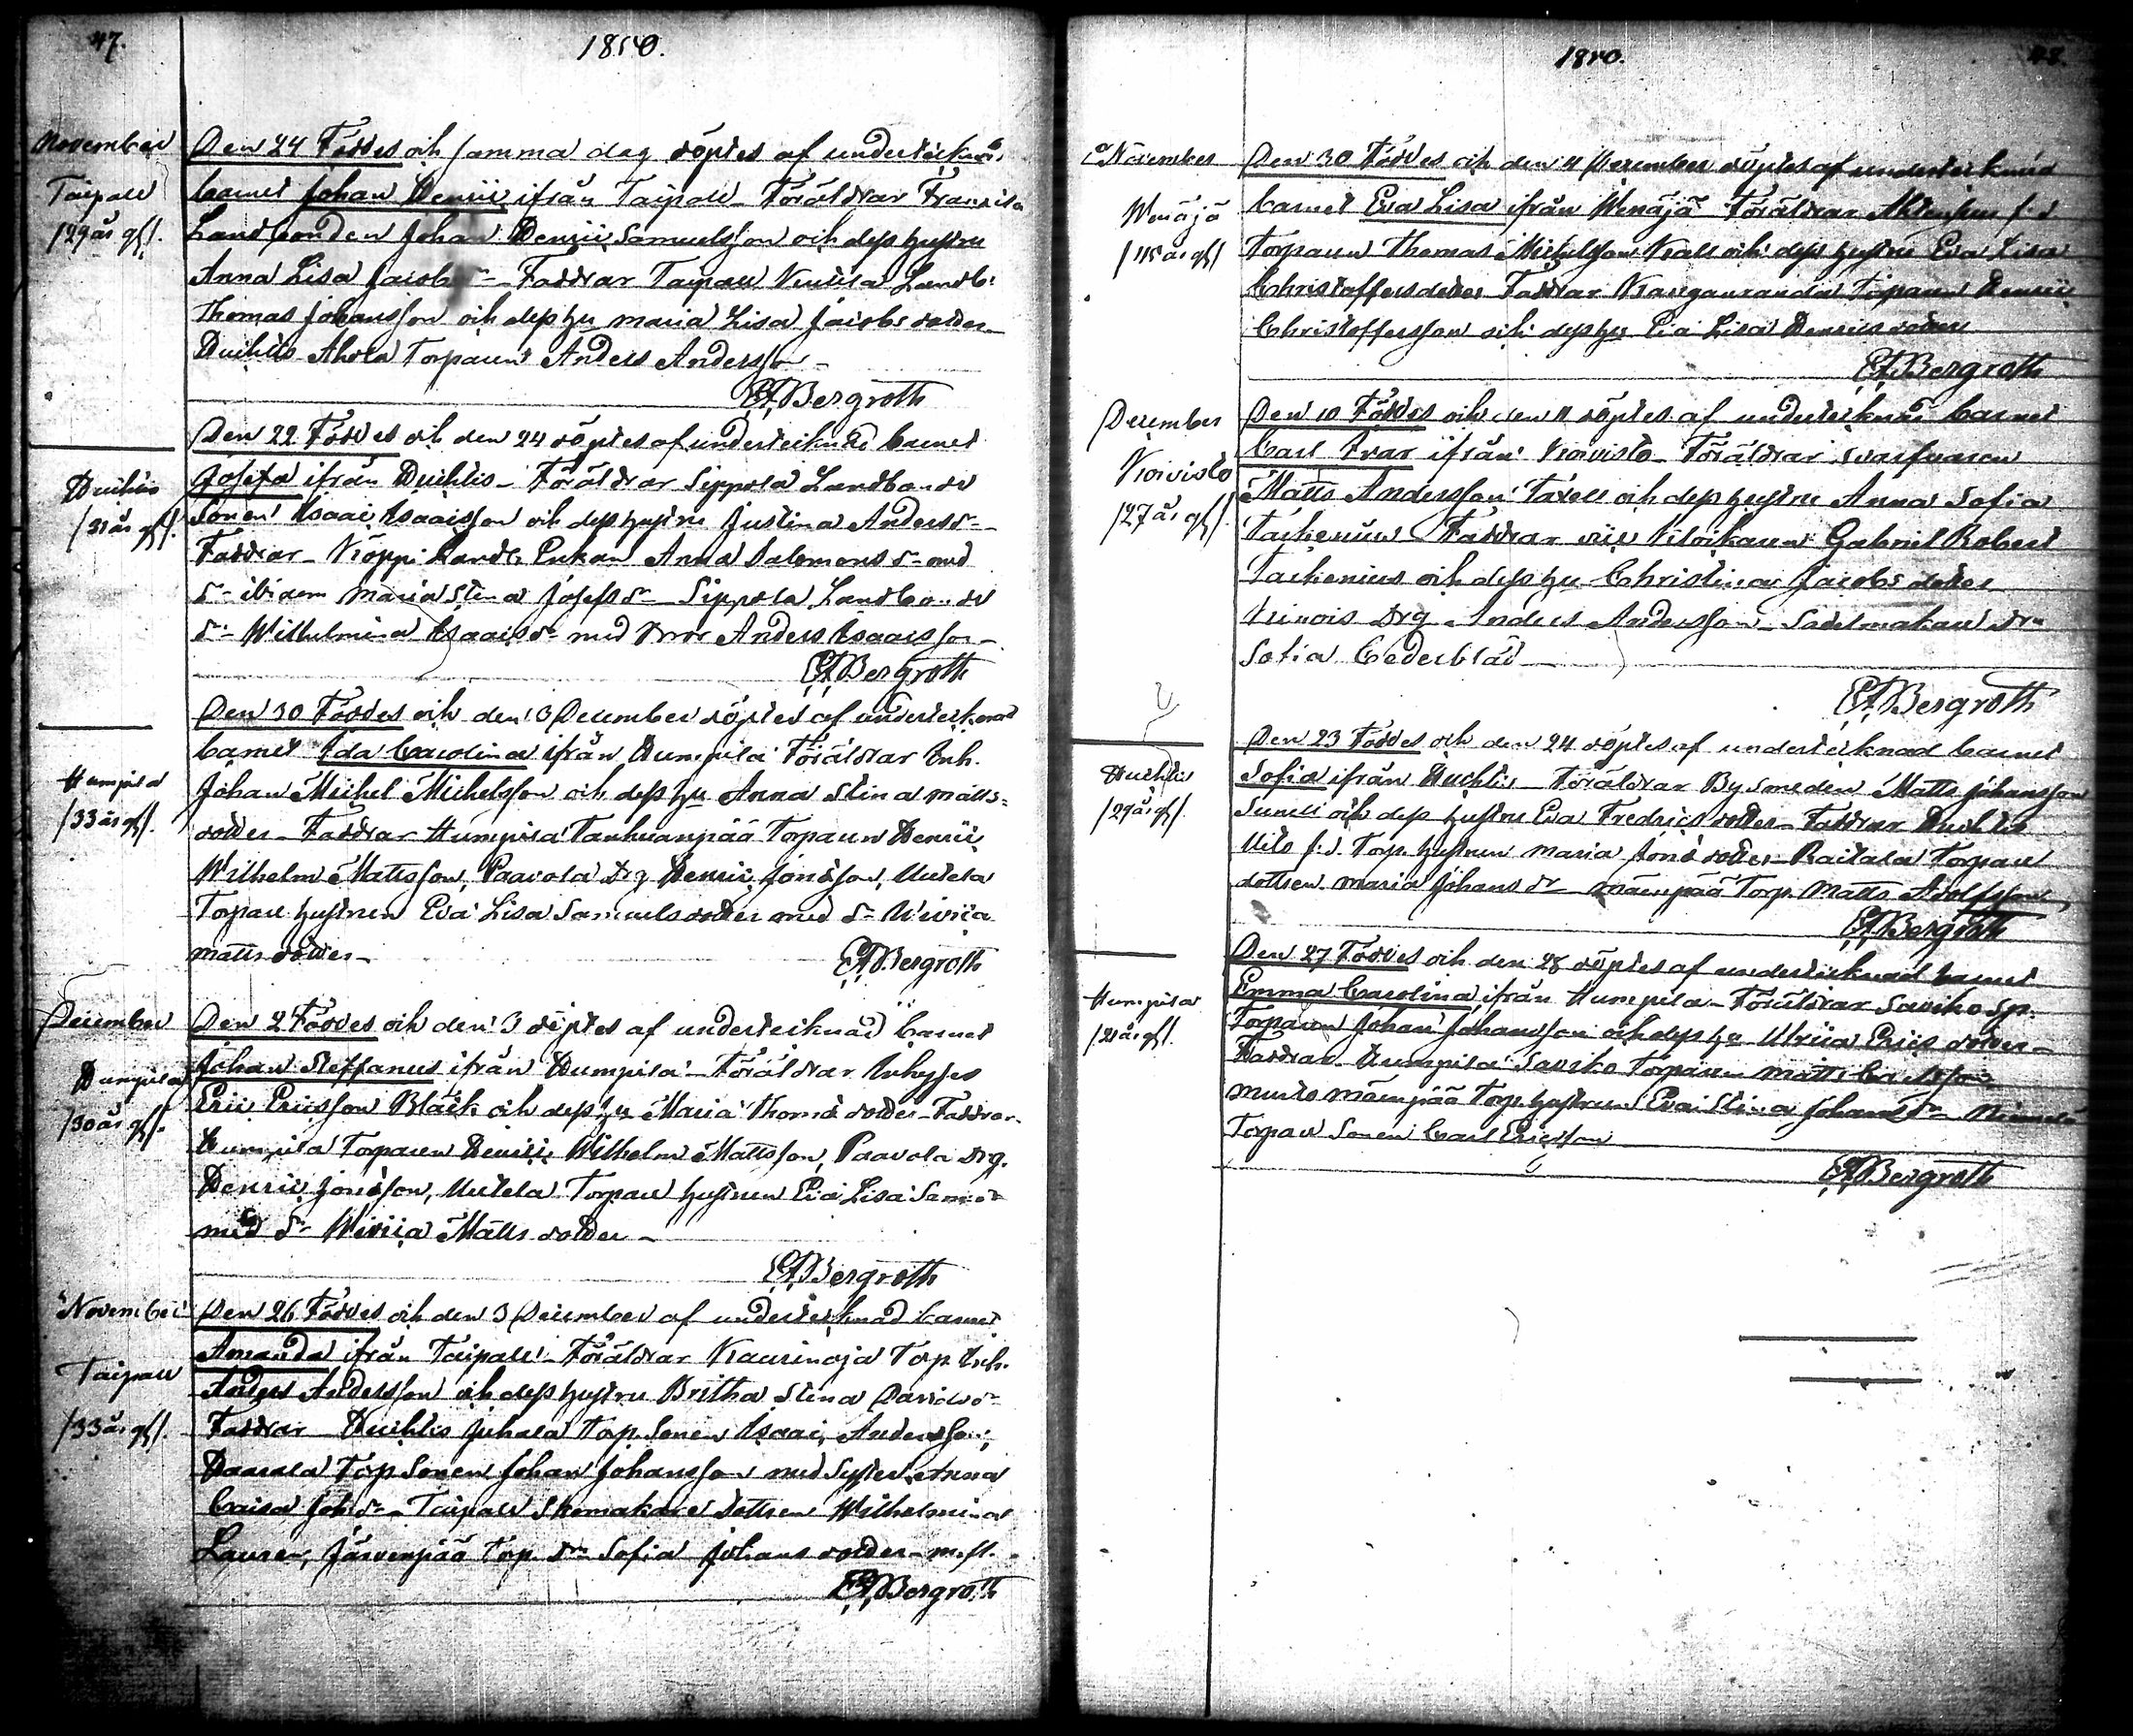 47.
1850.
November
Taipale
/29 år gl/.
Den 24 Föddes och samma dag döptes af undertecknad
barnet Johan Henric ifrån Taipale - Föräldrar Fransila
Landbonden Johan Henric Samuelsson och dess hustru
Anna Lisa Jacobs dr - Faddrar Taipale Landb:
Thomas Johansson och dess hu Maria Lisa Jacobs dotter
Huhtis Ahola Torparen Anders Andersson -
EABergroth
Huhtis
/31 år gl/.
Den 22 Föddes och den 24 döptes af undertecknad barnet
Josefa ifrån Huhtis - Föräldrar Sippola Landbonde
Sonen Isaac Isaacsson och dess hustru Justina Anders dr -
Faddrar - Köppi Landb. Enkan Anna Salomons dr med
dr ibidem Maria Stina Josefs dr - Sippola Landbonde
dr Wilhelmina Isaacs dr med bror Anders Isaacsson -
EABergroth
Humpila
/33 år gl/.
Den 30 Föddes och den 3 December döptes af undertecknad
barnet Ida Carolina ifrån Humpila Föräldrar Inh.
Johan Michel Michelsson och dess hu Anna Stina Matts-
dotter - Faddrar Humpila Tanhuanpää Torparen Henric
Wilhelm Mattsson, Paavola Drg Henric Jonasson, Uutela
Torpare hustrun Eva Lisa Samuelsdotter med dr Wivica
Matts dotter -
EABergroth
December
Humpila
/30 år gl/.
Den 2 Föddes och den 3 döptes af undertecknad barnet
Johan Steffanus ifrån Humpila - Föräldrar Inhyses
Eric Ericsson Bläck och dess hu Maria Thomas dotter - Faddrar
Humpila Torparen Henric Wilhelm Mattsson, Paavola Drg.
Henric Jonasson, Uutela Torpare hustrun Eva Lisa Sam. dr
med dr Wivica Matts dotter -
EABergroth
November
Taipale
/33 år gl/.
Den 26 Föddes och den 3 December af undertecknad barnet
Amanda ifrån Taipale - Föräldrar Kaurinoja Torp Inh.
Anders Andersson och dess hustru Britha Stina Davids dr
Faddrar - Huhtis Juhala Torp. Sonen Isaac Andersson,
Torp Sonen Johan Johansson med Syster Anna
Caisa Joh. dr - Taipale Skomakare dottren Wilhelmina
Lauren, Järvenpää torp. drn Sofia Johans dotter - m. fl.
EABergroth
1850.
48.
November
Wenäjä
/45 år gl/
Den 30 Föddes och den 4 December döptes af undertecknad
barnet Eva Lisa ifrån Wenäjä Föräldrar f.d
Torparen Thomas Michelsson och dess hustru Eva Lisa
Christoffersdotter Faddrar Kangasranda Torparen Henric
Christoffersson och dess hu Eva Lisa Henrics dotter
EABergroth
December
Koivisto
/27 år gl/.
Den 10 Föddes och den 11 döptes af undertecknad barnet
Carl Ivar ifrån Koivisto - Föräldrar svarfvaren
Matts Andersson och dess hustru Anna Sofia
Tackenius Faddrar vice Klockaren Gabriel Robert
Tackenius och dess hu Christina Jacobs dotter
Drg Anders Andersson - Sadelmakare drn
Sofia Cederblad
EABergroth
Huhtis
/29 år gl/.
Den 23 Föddes och den 24 döptes af undertecknad barnet
Sofia ifrån Huhtis - Föräldrar By Smeden Matts Johansson
och dess hustru Eva Fredrics dotter - Faddrar Huhtis
f.d. Torp. hustrun Maria Jonas dotter - Raitala Torpare
dottren Maria Johans dr - Mäenpää Torp. Matts Adolfsson
EABergroth
Humpila
/21 år gl/.
Den 27 Föddes och den 28 döptes af undertecknad barnet
Emma Carolina ifrån Humpila - Föräldrar Saviko Sp.
Torparen Johan Johansson och dess hu Ulrica Erics dotter -
Faddrar Humpila Saviko Torparen Matts Carlsson
Mäenpää Torp. hustrun Eva Stina Johans dr
Torpare Sonen Carl Ericsson
EABergroth